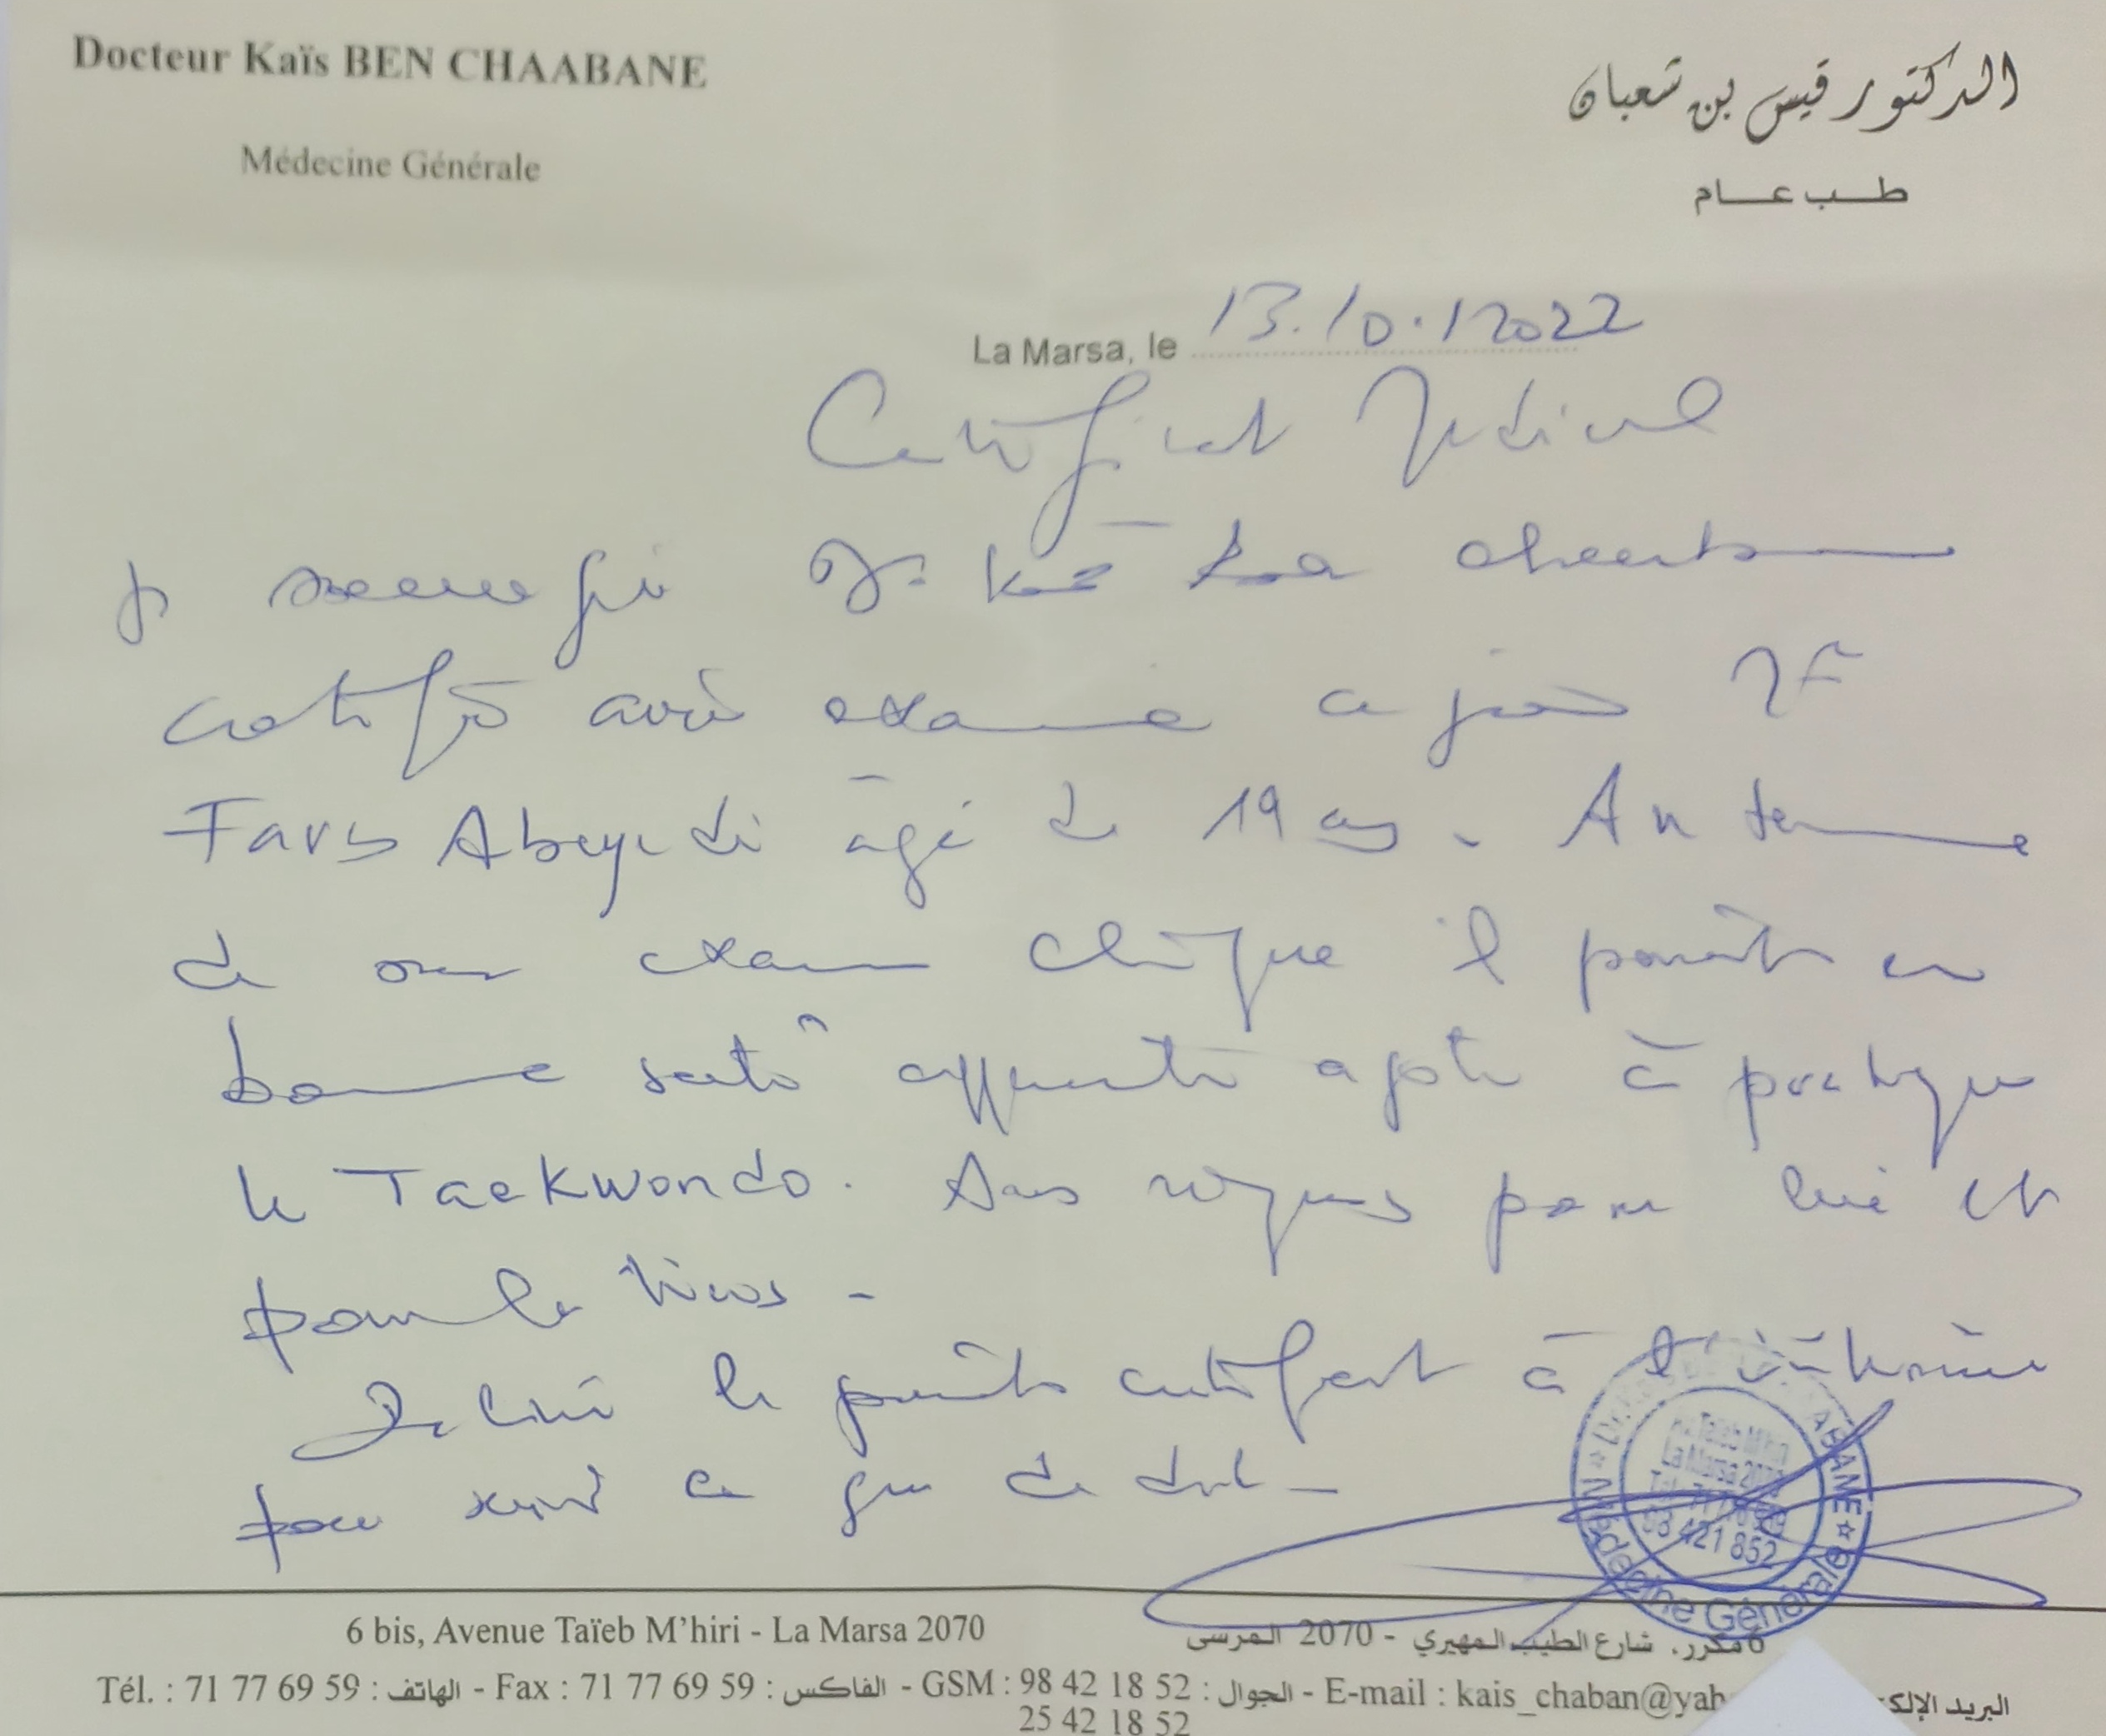 Docteur Kaïs BEN CHAABANE
الدكتور قيس بن شعبان
Médecine Générale
طب عام
La Marsa, le 13.10.2022
Certificat Médical
Je soussigné Dr. Kaïs Ben Chaabane
certifie avoir examiné ce jour Mr
Fares Abeydi âgé de 19 ans. Au terme
de mon examen clinique il paraît en
bonne santé apparente apte à pratiquer
le Taekwondo. Sans risques pour lui et
pour les tiers -
Délivré le présent certificat à l'intéressé
pour servir ce que de droit -
ABANE ★
La Marsa 2070
98 421 852
★ Médecine Générale
6 bis, Avenue Taïeb M'hiri - La Marsa 2070
6 مكرر، شارع الطيب المهيري - 2070 المرسى
Tél. : 71 77 69 59 : الهاتف - Fax : 71 77 69 59 : الفاكس - GSM : 98 42 18 52 : الجوال - E-mail : kais_chaban@yah البريد الإلك
25 42 18 52